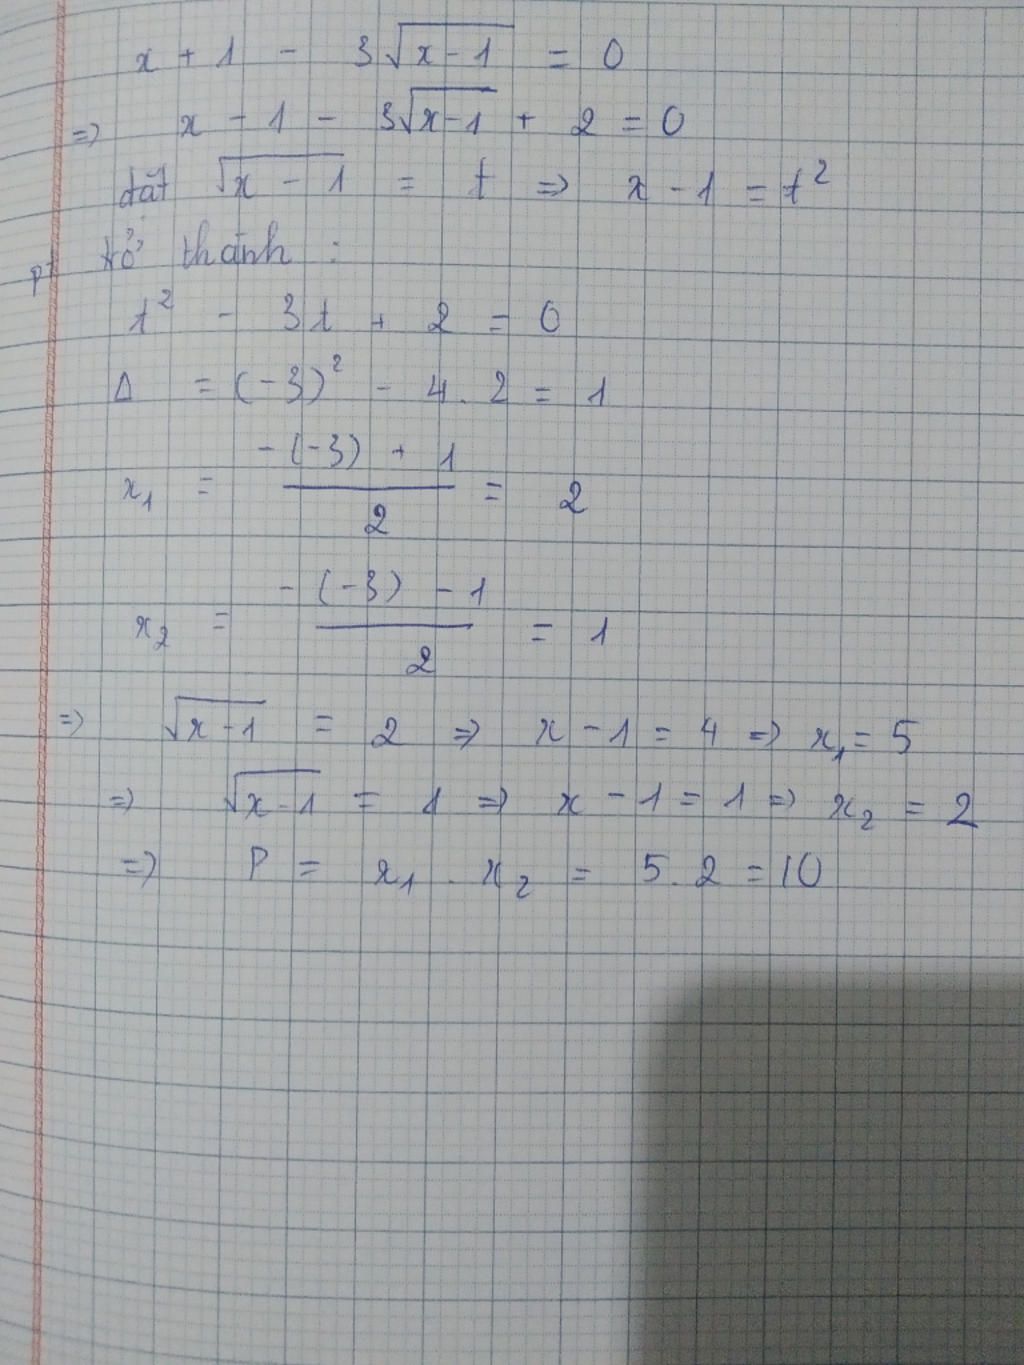 x + 1 - 3√(x-1) = 0
=> x - 1 - 3√(x-1) + 2 = 0
đặt √(x - 1) = t => x - 1 = t²
pt trở thành :
t² - 3t + 2 = 0
Δ = (-3)² - 4. 2 = 1
x₁ = (-(-3) + 1)/2 = 2
x₂ = (-(-3) - 1)/2 = 1
=> √(x-1) = 2 => x - 1 = 4 => x₁ = 5
=> √(x-1) = 1 => x - 1 = 1 => x₂ = 2
=> P = x₁ . x₂ = 5. 2 = 10